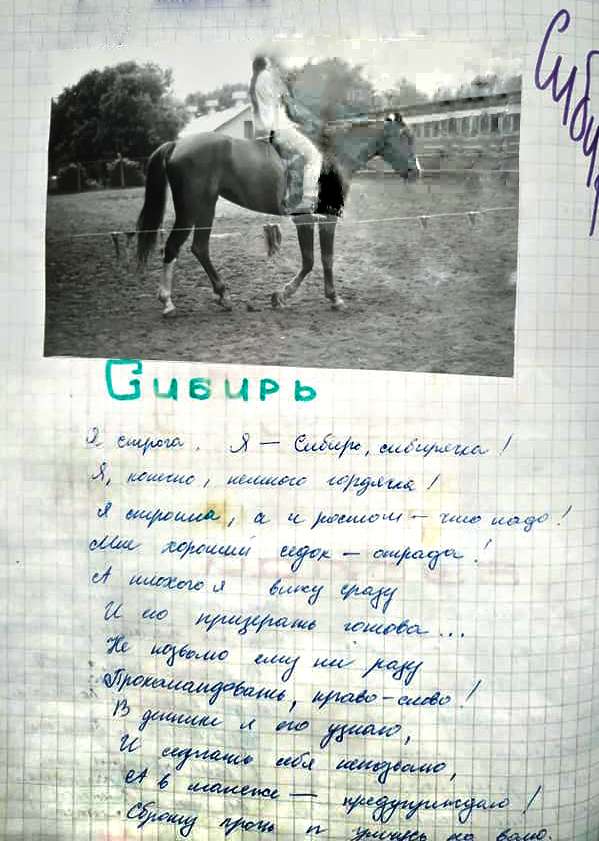 Сибирь
Я строга. Я — Сибирь, сибирячка!
Я, конечно, немного гордячка!
Я стройна, а и ростом — что надо!
Мне хороший седок — отрада!
А плохого я вижу сразу
И его призерать готова...
Не позволю ему ни разу
Прокомандовать, право-слово!
В деннике я его узнаю,
И седлать себя непозволю,
А в манеже — предупреждаю!
Сброшу прочь и умчусь на волю.